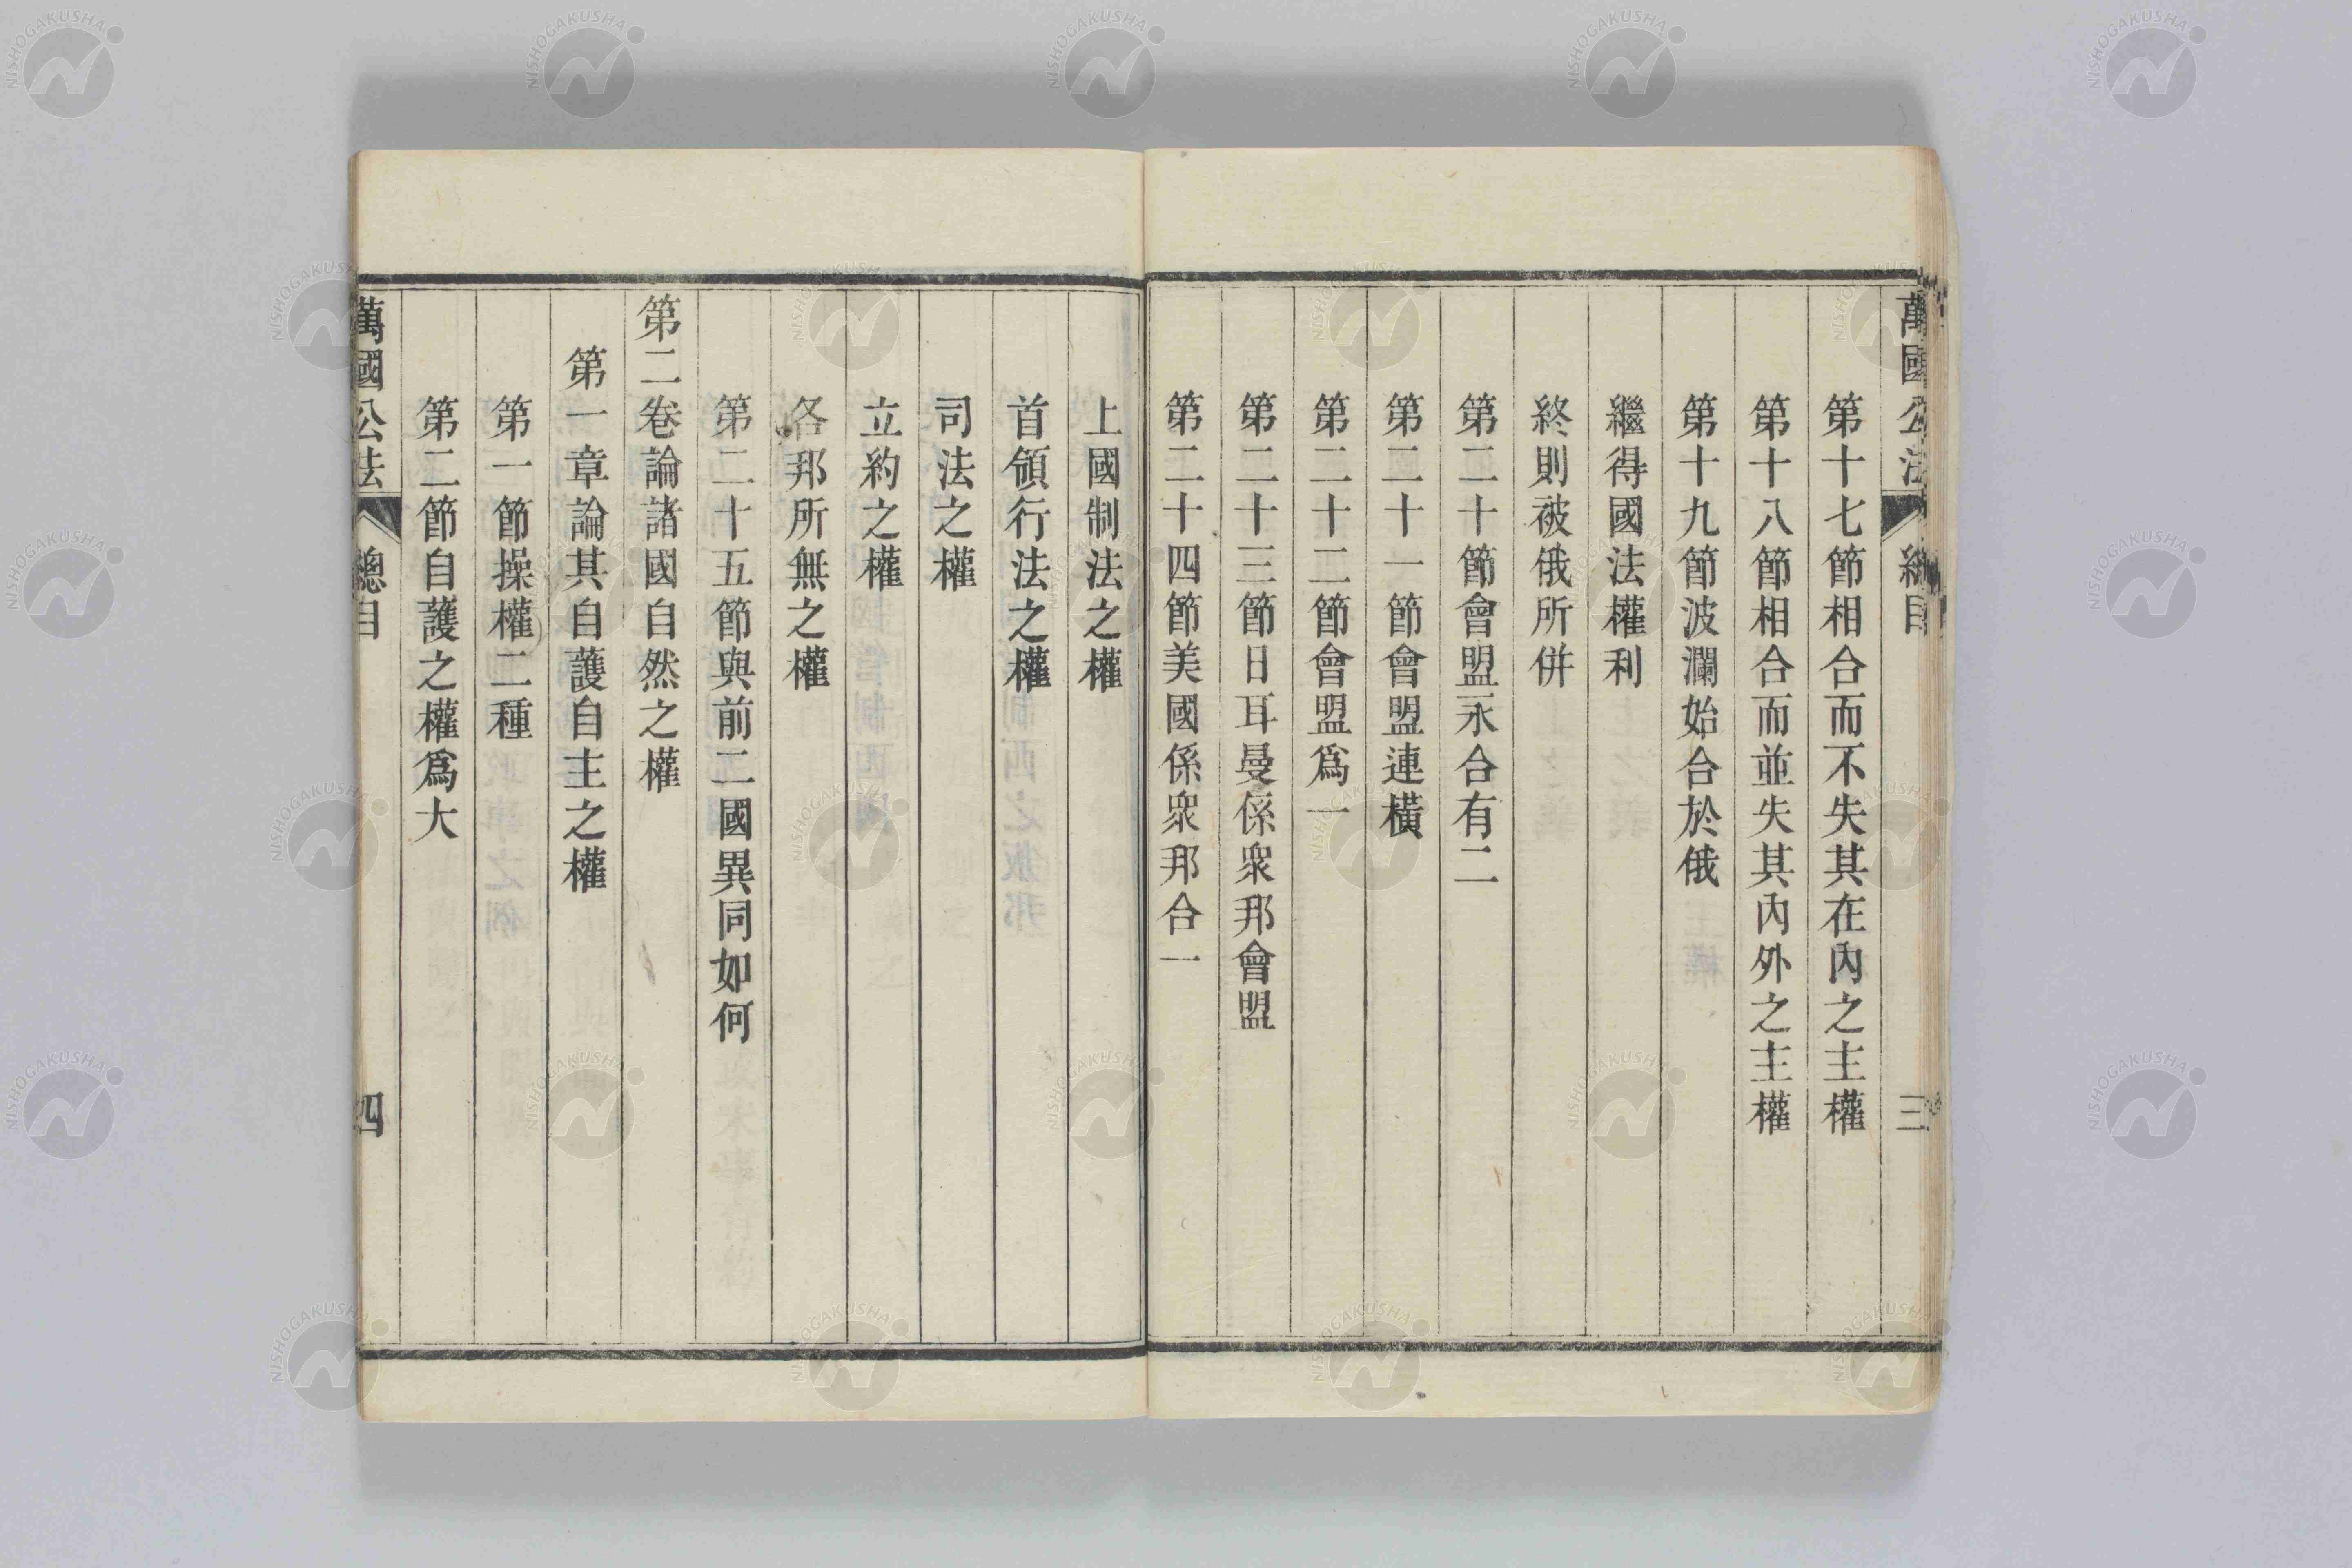 萬國公法 總目 三
第十七節相合而不失其在內之主權
第十八節相合而並失其內外之主權
第十九節波瀾始合於俄
繼得國法權利
終則被俄所併
第二十節會盟永合有二
第二十一節會盟連橫
第二十二節會盟爲一
第二十三節日耳曼係衆邦會盟
第二十四節美國係衆邦合一
上國制法之權
首領行法之權
司法之權
立約之權
各邦所無之權
第二十五節與前二國異同如何
第二卷論諸國自然之權
第一章論其自護自主之權
第一節操權二種
第二節自護之權爲大
萬國公法 總目 四
NISHOGAKUSHA